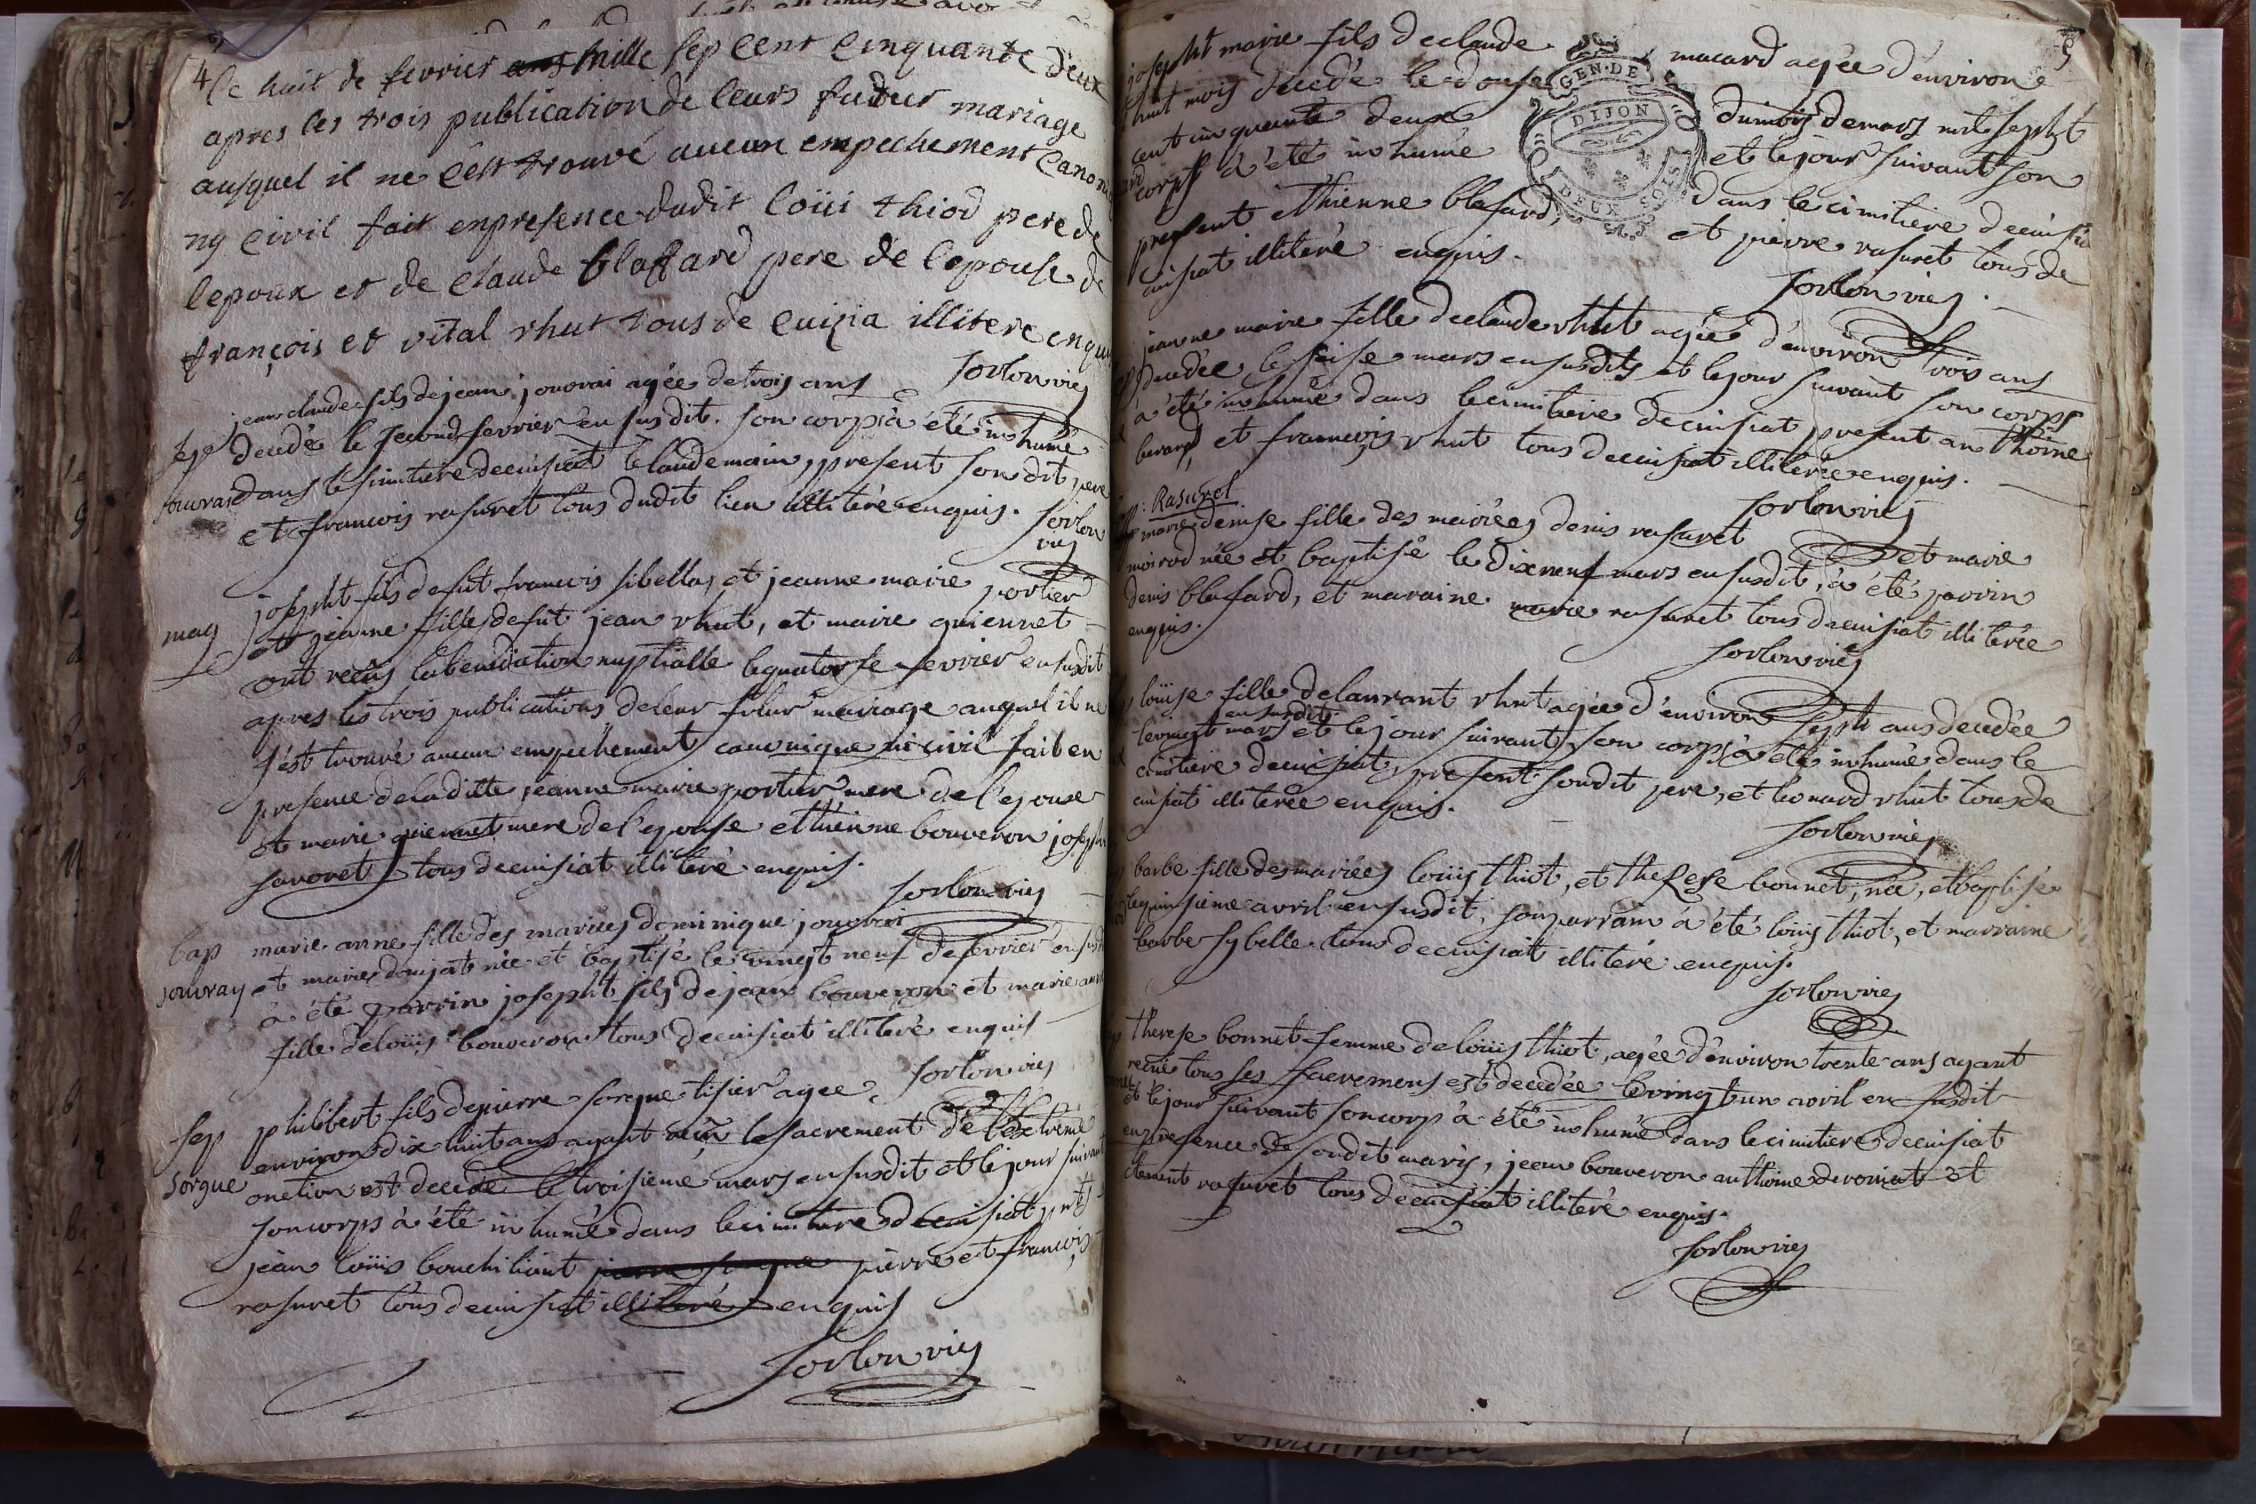 4
le huit de fevrier mille sep cent cinquante deux
apres les trois publication de leurs futur mariage
ausquel il ne c'est trouvé aucun empechement canoni
ny civil fait enpresence dudit loüi thiod pere de
lepoux et de claude blaffard pere de lepouse de
françois et vital rhut tous de cuizia illitere enqui
sorlon vic
sep
jouvrai
jean claude fils de jean jouvrai agée de trois ans
decedé le second fevrier en susdit. son corp à été inhumé
dans le simitiere decuisiat le landemain, present son dit pere
et francois rasuret tous dudit lieu illiteré enquis.
sorlon
vic
mag
josepht fils defut francois sibellas et jeanne marie portier
et jeanne fille defut jean rhut, et marie guiennet
ont recûs la benediction nuptialle le quatorse fevrier en susdit
apres les trois publications de leur futur mariage auquel il ne
s'est trouvé aucun empechement canonique ni civil fait en
presence de la ditte jeanne marie portier mere de l'epouse
et marie guiennet mere de l'epouse etthienne bouveron joseph
savoret tous decuisiat illiteré enquis.
sorlon vic
bap
jouvray
marie anne fille des mariées dominique jouvrai
et marie donjat née et baptisé le vingt neuf de fevrier en susd
à été parrin josepht fils de jean bouveron et marie anne
fille de loüis bouveron tous decuisiat illiteré enquis
sorlon vic
sep
sorgue
philibert fils depierre sorgue tisier agee
environ dix huit ans ayant recû le sacrement de l'extreme
onction est decedé le troisieme mars en susdit et le jour suivant
son corps à été inhumé dans le cimitiere decuisiat pnts
jean loüis bouchiliout pierre et francois
rasuret tous decuisiat illiteré enquis
sorlon vic
5
GEN. DE
DIJON
DEUX SOLS
josepht marie fils declaude macard agée d'environ
huit mois decedé le douse du mois de mars mil sepht
cent cinquante deux et le jour suivant son
corps à été inhumé dans le cimitiere decuisia
present ethienne blafard, et pierre rasuret tous de
cuisiat illiteré enquis.
sorlon vic
jeanne marie fille declaude rhut agée d'environ trois ans
decedée le seise mars en susdits et le jour suivant son corps
à été inhumé dans le cimitiere decuisiat present anthoine
berard et francois rhut tous decuisiat illiterée enquis.
sorlon vic
: Rasurel
marie denise fille des mariées denis rasuret et marie
moirod née et baptisé le dixneuf mars en susdit, à été parrin
denis blafard, et maraine marie rasuret tous decuisiat illiterée
enquis.
sorlon vic
loüise fille de laurant rhut agée d'environ sepht ans decedée
en susdit
le vingt mars et le jour suivant son corps à été inhumé dans le
cimitiere decuisiat, present sondit pere, et leonard rhut tous de
cuisiat illiterée enquis.
sorlon vic
barbe fille des mariées loüis thiot, et therese bonnet, née, et baptisée
le quinsieme avril en susdit, son parrain à été loüis thiot, et marraine
barbe sybelle tous decuisiatt illiteré enquis.
sorlon vic
therese bonnet femme de loüis thiot, agée d'environ trente ans ayant
recüe tous ses sacremens est decedée le vingt un avril en susdit
et le jour suivant son corp à été inhumé dans le cimitiere decuisiat
en presence de sondit maris, jean bouveron anthoine deroniat et
clement rasuret tous decuisiat illiteré enquis.
sorlon vic